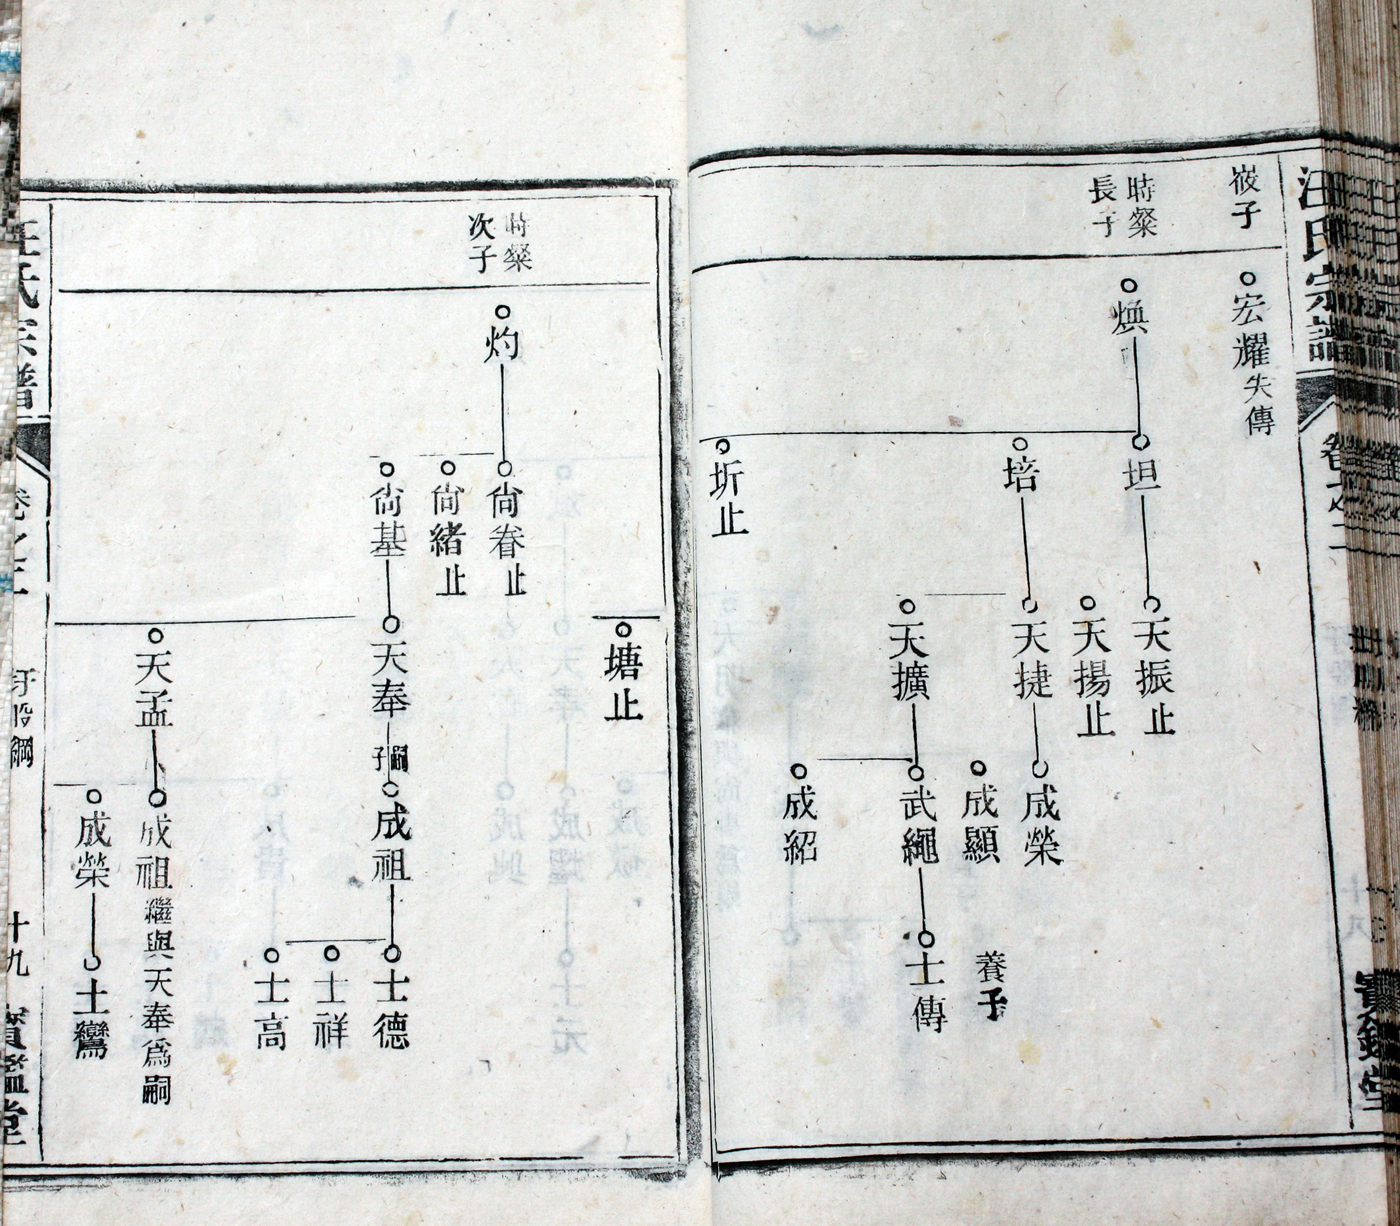 汪氏宗譜
卷之二
寶鑑堂
峧子
宏耀失傳
時粲
長子
煥
坦
培
圻止
天振止
天揚止
天捷
天擴
成榮
成顯
武繩
成紹
養子
士傳
塘止
時粲
次子
灼
尙眷止
尙緒止
尙基
天奉
嗣子
成祖
士德
士祥
士高
天孟
成祖繼與天奉爲嗣
成榮
士鸞
汪氏宗譜
卷之二
圩股綱
十九
寶鑑堂